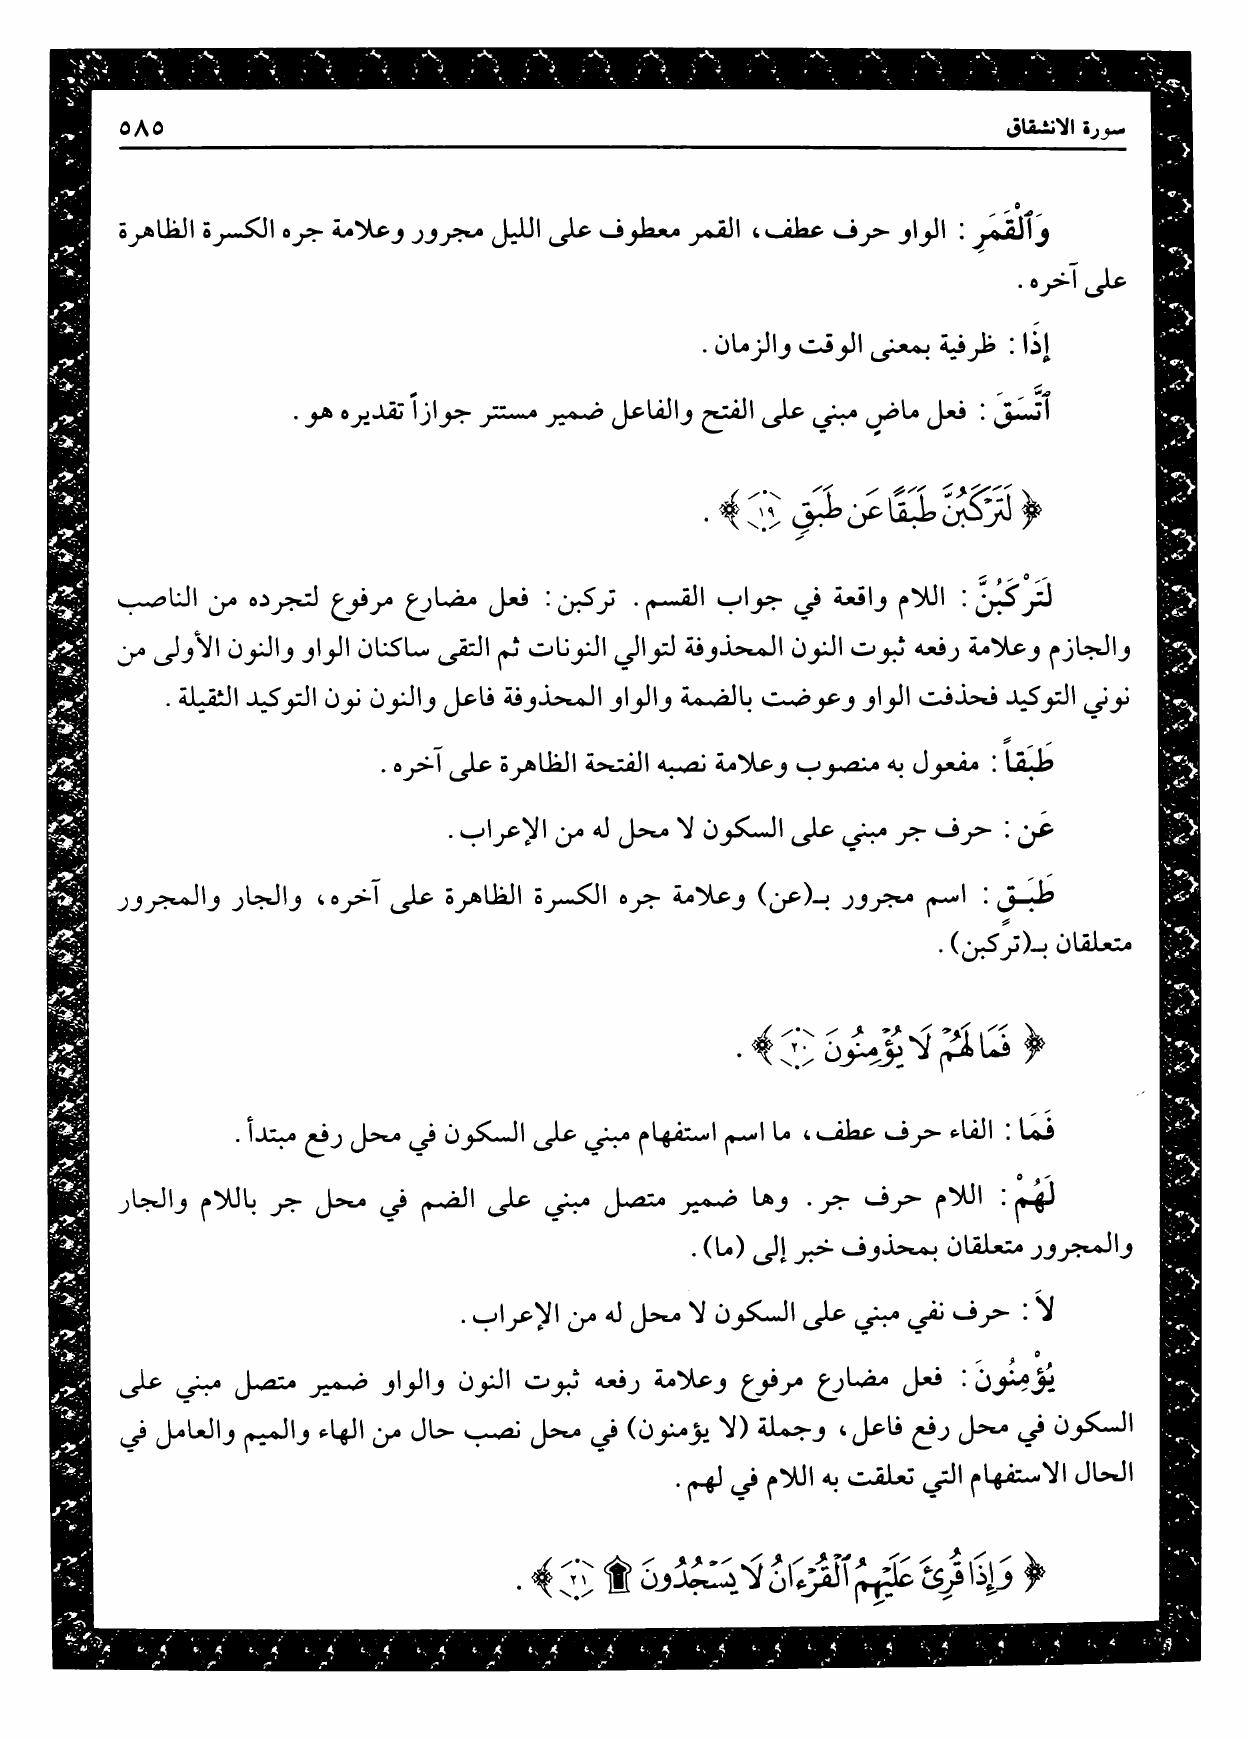 سورة الانشقاق ٥٨٥
وَٱلْقَمَرِ : الواو حرف عطف، القمر معطوف على الليل مجرور وعلامة جره الكسرة الظاهرة
على آخره .
إِذَا : ظرفية بمعنى الوقت والزمان .
ٱتَّسَقَ : فعل ماضٍ مبني على الفتح والفاعل ضمير مستتر جوازاً تقديره هو .
﴿ لَتَرْكَبُنَّ طَبَقًا عَن طَبَقٍ ١٩ ﴾ .
لَتَرْكَبُنَّ : اللام واقعة في جواب القسم. تركبن: فعل مضارع مرفوع لتجرده من الناصب
والجازم وعلامة رفعه ثبوت النون المحذوفة لتوالي النونات ثم التقى ساكنان الواو والنون الأولى من
نوني التوكيد فحذفت الواو وعوضت بالضمة والواو المحذوفة فاعل والنون نون التوكيد الثقيلة .
طَبَقاً : مفعول به منصوب وعلامة نصبه الفتحة الظاهرة على آخره .
عَن : حرف جر مبني على السكون لا محل له من الإعراب .
طَبَـقٍ : اسم مجرور بـ(عن) وعلامة جره الكسرة الظاهرة على آخره، والجار والمجرور
متعلقان بـ(تركبن) .
﴿ فَمَا لَهُمْ لَا يُؤْمِنُونَ ٢٠ ﴾ .
فَمَا : الفاء حرف عطف، ما اسم استفهام مبني على السكون في محل رفع مبتدأ .
لَهُمْ : اللام حرف جر . وها ضمير متصل مبني على الضم في محل جر باللام والجار
والمجرور متعلقان بمحذوف خبر إلى (ما) .
لاَ : حرف نفي مبني على السكون لا محل له من الإعراب .
يُؤْمِنُونَ : فعل مضارع مرفوع وعلامة رفعه ثبوت النون والواو ضمير متصل مبني على
السكون في محل رفع فاعل، وجملة (لا يؤمنون) في محل نصب حال من الهاء والميم والعامل في
الحال الاستفهام التي تعلقت به اللام في لهم .
﴿ وَإِذَا قُرِئَ عَلَيْهِمُ ٱلْقُرْءَانُ لَا يَسْجُدُونَ ۩ ٢١ ﴾ .